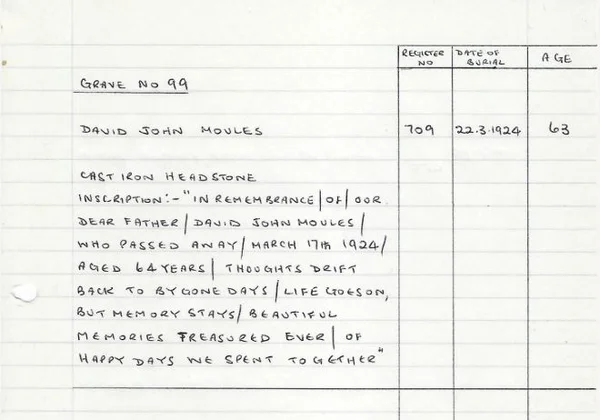 REGISTER NO DATE OF BURIAL AGE
GRAVE NO 99
DAVID JOHN MOULES 709 22.3.1924 63
CAST IRON HEADSTONE
INSCRIPTION:- "IN REMEMBRANCE/OF/OUR
DEAR FATHER/DAVID JOHN MOULES/
WHO PASSED AWAY/MARCH 17th 1924/
AGED 64 YEARS/THOUGHTS DRIFT
BACK TO BYGONE DAYS/LIFE GOES ON,
BUT MEMORY STAYS/BEAUTIFUL
MEMORIES TREASURED EVER/OF
HAPPY DAYS WE SPENT TOGETHER"